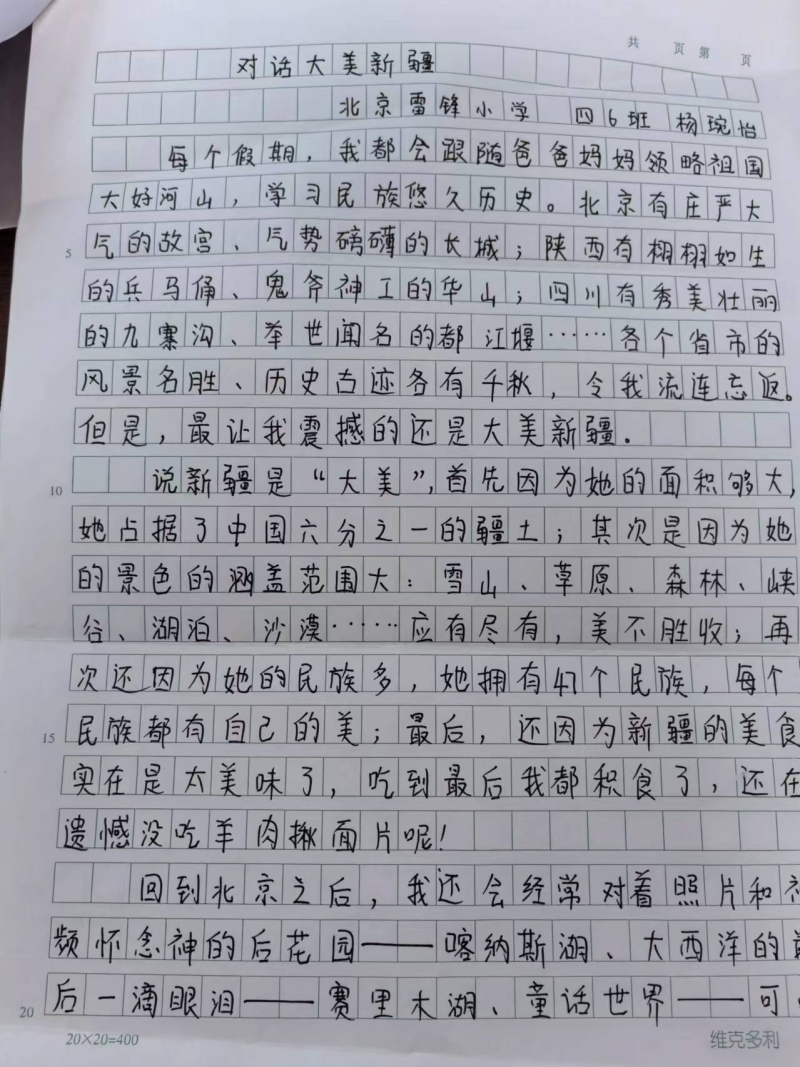 共 页 第 页
对话大美新疆
北京雷锋小学 四6班 杨琬怡
每个假期，我都会跟随爸爸妈妈领略祖国
大好河山，学习民族悠久历史。北京有庄严大
5 气的故宫、气势磅礴的长城；陕西有栩栩如生
的兵马俑、鬼斧神工的华山；四川有秀美壮丽
的九寨沟、举世闻名的都江堰……各个省市的
风景名胜、历史古迹各有千秋，令我流连忘返。
但是，最让我震撼的还是大美新疆.
10 说新疆是“大美”，首先因为她的面积够大，
她占据了中国六分之一的疆土；其次是因为她
的景色的涵盖范围大：雪山、草原、森林、峡
谷、湖泊、沙漠……应有尽有，美不胜收；再
次还因为她的民族多，她拥有47个民族，每个
15 民族都有自己的美；最后，还因为新疆的美食
实在是太美味了，吃到最后我都积食了，还在
遗憾没吃羊肉揪面片呢！
回到北京之后，我还会经常对着照片和
频怀念神的后花园——喀纳斯湖、大西洋的
20 后一滴眼泪——赛里木湖、童话世界——可
20×20=400 维克多利